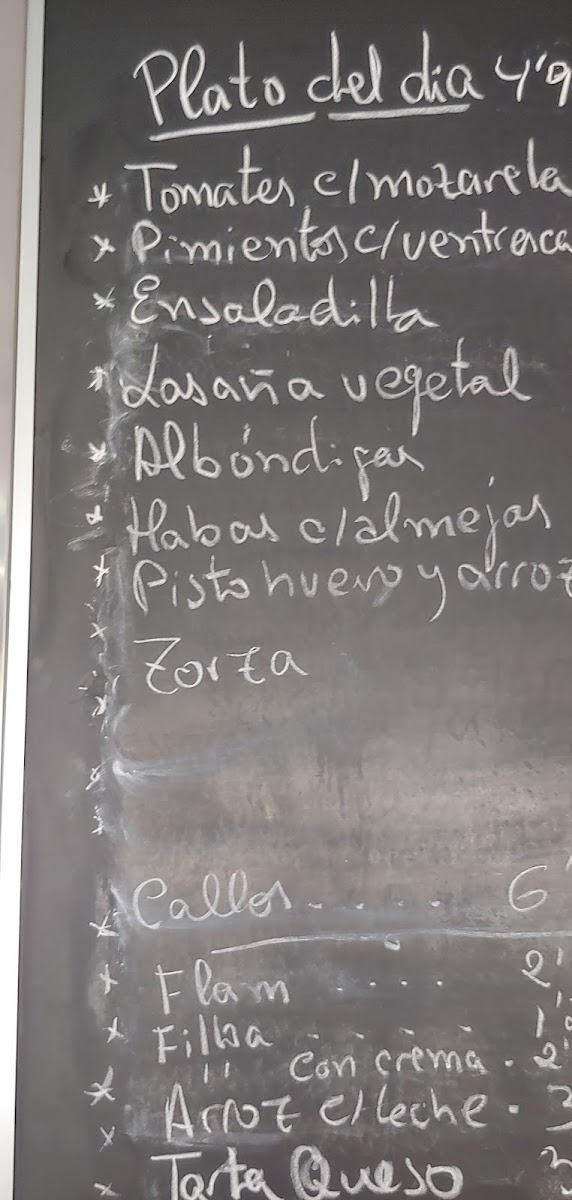 Plato del dia 4'9
* Tomates c/mozarela
* Pimientos c/ventresca
* Ensaladilla
* Lasaña vegetal
* Albóndigas
* Habas c/almejas
* Pisto huevo y arroz
* Zorza
* Callos..... 6'
* Flam .... 2'
* Filloa ... 1'
* " con crema. 2'
* Arroz c/leche. 3
* Tarta Queso 3